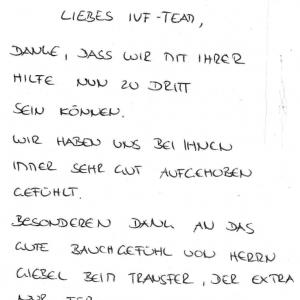 LIEBES IVF-TEAM,
DANKE, DASS WIR MIT IHRER
HILFE NUN ZU DRITT
SEIN KÖNNEN.
WIR HABEN UNS BEI IHNEN
IMMER SEHR GUT AUFGEHOBEN
GEFÜHLT.
BESONDEREN DANK AN DAS
GUTE BAUCHGEFÜHL VON HERRN
GIEBEL BEIM TRANSFER, DER EXTRA